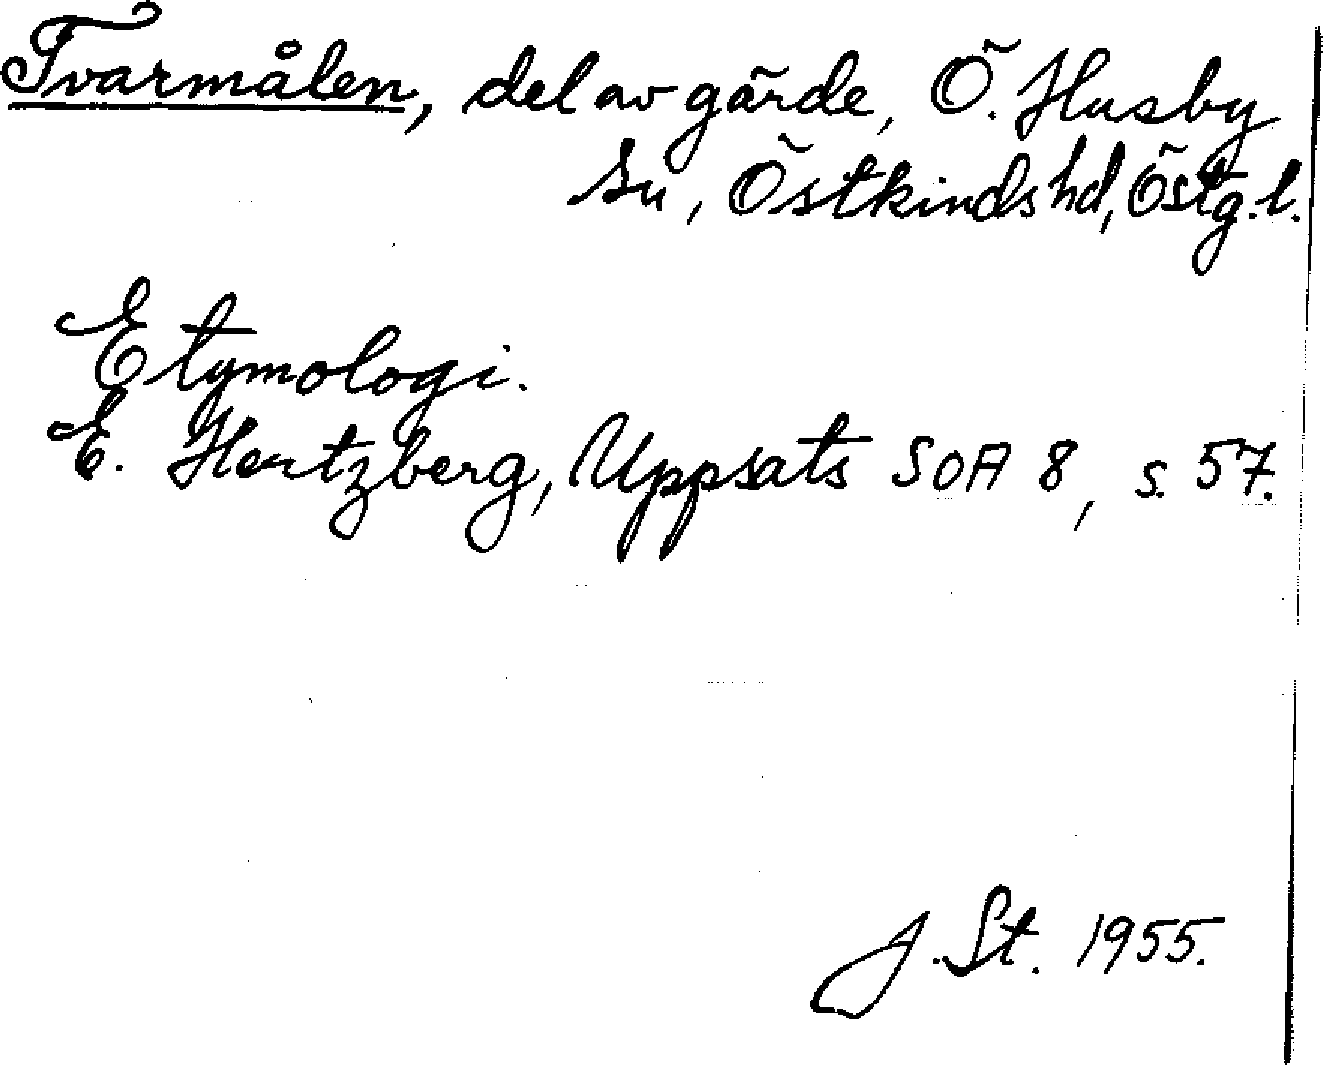 Tvarmålen, del av gärde, Ö. Husby
sn, Östkinds hd, Östg. l.
Etymologi.
E. Hertzberg, Uppsats SOA 8, s. 57.
J. St. 1955.